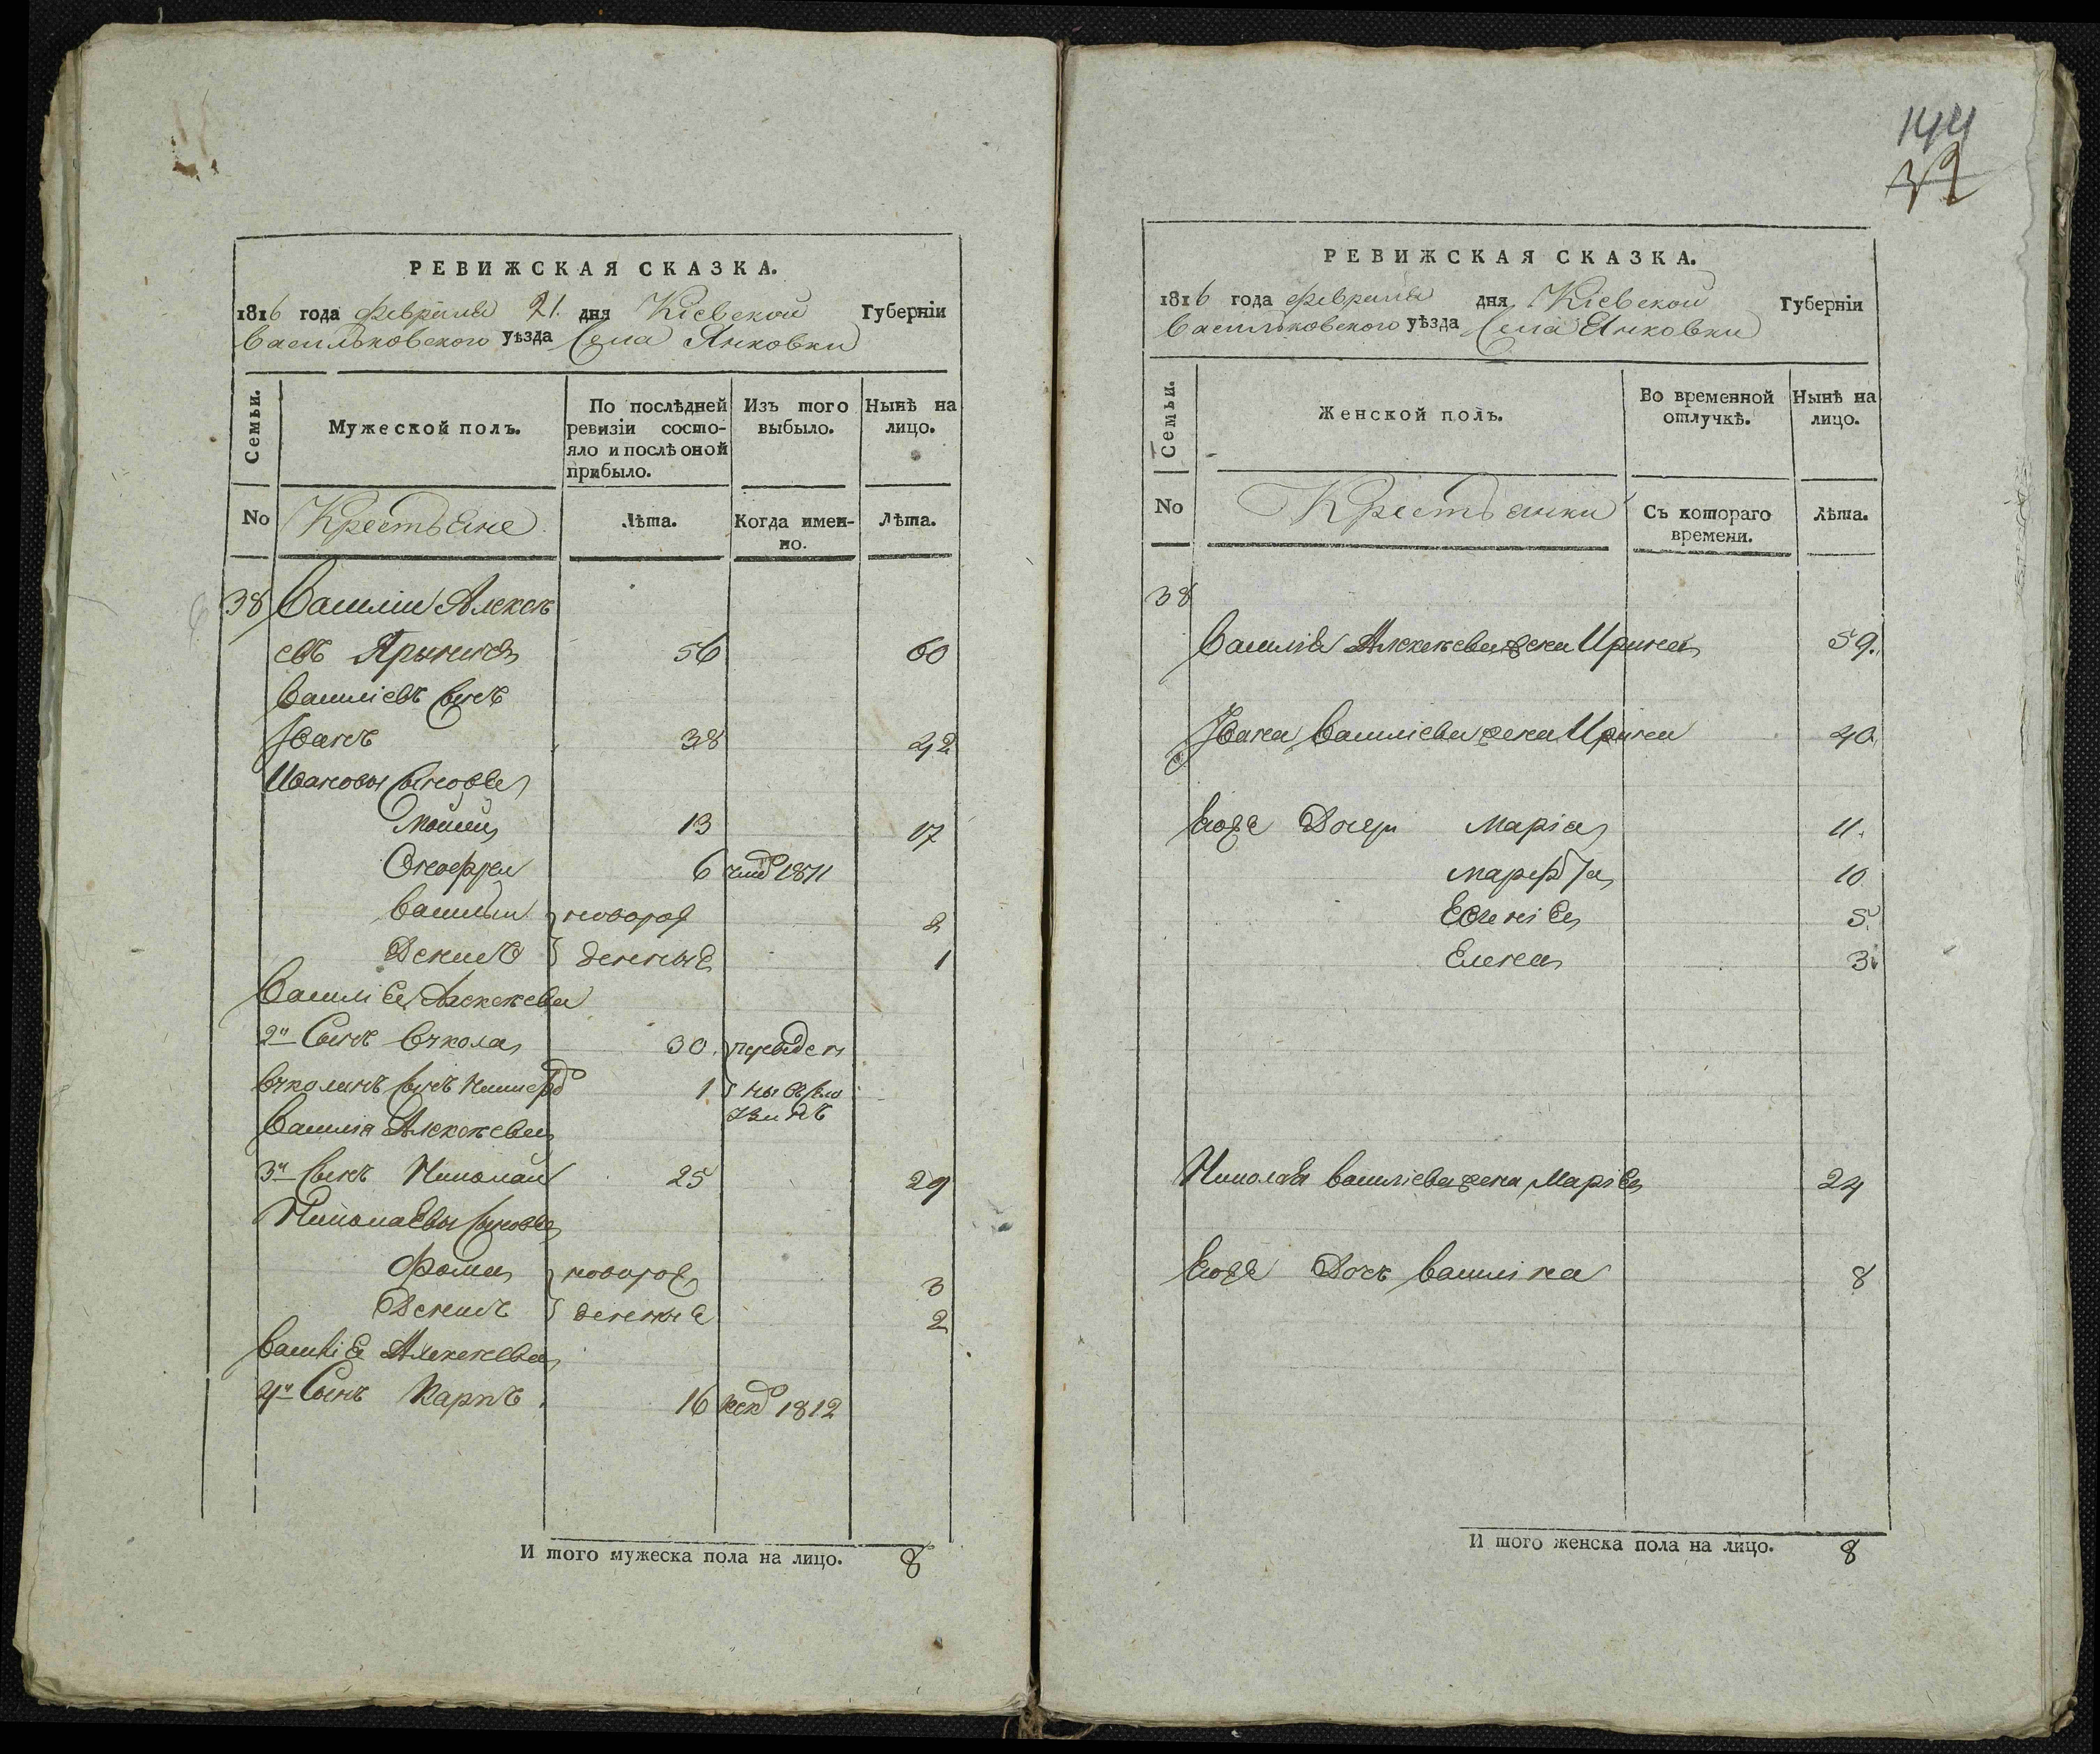 РЕВИЖСКАЯ СКАЗКА.
1816 года февраля 21. дня Кіевской Губерніи
Васильковского уѣзда Села Янковки
Семьи.
Мужеской полъ.
По послѣдней ревизіи состояло и послѣ оной прибыло.
Изъ того выбыло.
Нынѣ на лицо.
No
Крестьяне
Лѣта.
Когда именно.
Лѣта.
38 Василій Алексѣ
евъ 56 60
Василіевъ сынъ
Іванъ 38 42
Ивановы сыновья
Мойсей 13 17
Онофрей 6 1811
Василій новорож 2
Денисъ денные 1
Василія Алексѣева
2й Сынъ 30 переведен
сынъ 1 ны въ село
Василія Алексѣева
3й сынъ Николай 25 29
Николаевы сыновья
Фома новорож 3
Денисъ денные 2
Василія Алексѣева
4й Сынъ Карпъ 16 1812
И того мужеска пола на лицо. 8
144
39
РЕВИЖСКАЯ СКАЗКА.
1816 года февраля дня Кіевской Губерніи
Васильковского уѣзда Села Янковки
Семьи.
Женской полъ.
Во временной отлучкѣ.
Нынѣ на лицо.
No
Крестьянки
Съ котораго времени.
Лѣта.
38
Василія Алексѣева жена Ирина 59.
Івана Василіева жена Ирина 40
Ево же Дочери Марія 11.
Марфа 10
Евгенія 5
Елена 3
Николая Василіева жена Марія 24
Ево же Дочь Василина 8
И того женска пола на лицо. 8